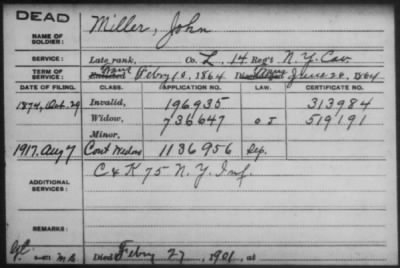 DEAD
NAME OF SOLDIER: Miller, John
SERVICE: Late rank, Co. L, 14 Reg't N.Y. Cav.
TERM OF SERVICE: Enlisted Feby 10, 1864 June 28, 1864
DATE OF FILING. CLASS. APPLICATION NO. LAW. CERTIFICATE NO.
1874, Oct. 29 Invalid, 196935 313984
Widow, 736647 O I 519191
Minor,
1917. Aug 7 Cont Widow 1136956 Sep.
ADDITIONAL SERVICES: C & K 75 N.Y. Inf.
REMARKS:
Died Feby 27, 1901, at